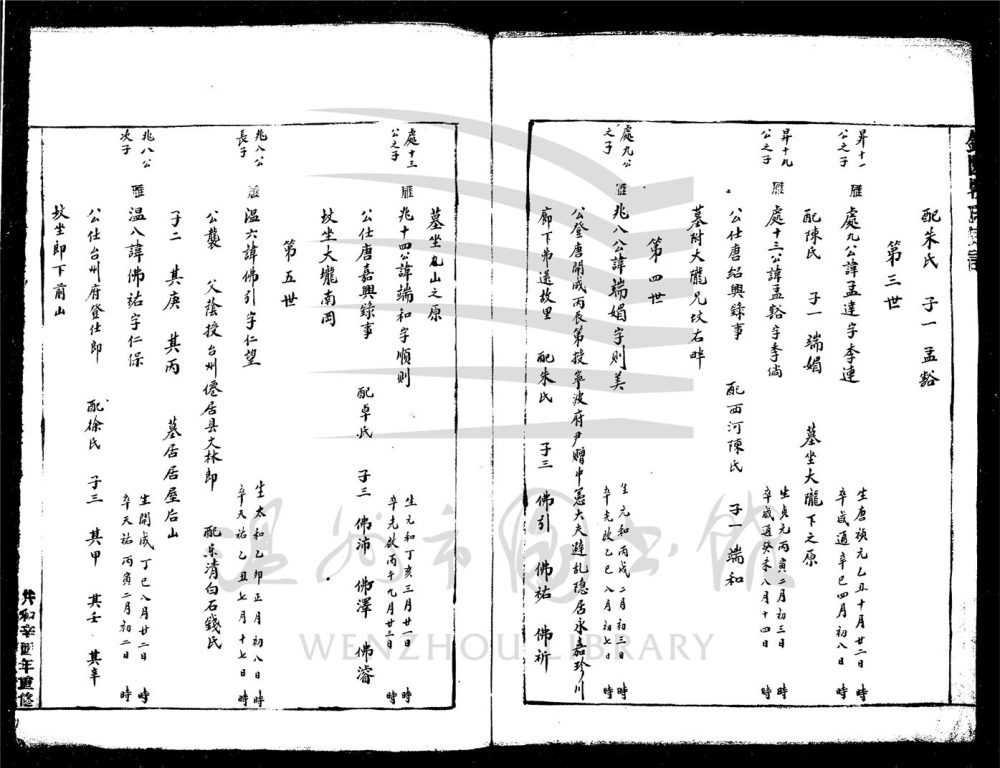 配朱氏 子一 孟豁
第三世
昇十一公之子 雁 處九公諱孟達字季連 生唐禎元乙丑十月廿二日 時 卒咸通辛巳四月初八日
配陳氏 子一 端娟 墓坐大隴下之原
昇十九公之子 雁 處十三公諱孟豁字季倘 生貞元丙寅二月初三日 卒咸通癸未八月十四日 時
公仕唐紹興錄事 配西河陳氏 子一 端和
墓附大隴兄坟右畔
第四世
處九公之子 雁 兆八公諱端娟字則美 生元和丙戌二月初三日 卒光啟乙巳八月初七日 時
公登唐開成丙辰第授寧波府尹贈中憲大夫避乱隐居永嘉珍川
廊下弟還故里 配朱氏 子三 佛引 佛祐 佛祈
墓坐丸山之原
處十三公之子 雁 兆十四公諱端和字順則 生元和丁亥三月廿一日 卒光啟丙午九月廿三日 時
公仕唐嘉興錄事 配卓氏 子三 佛沛 佛澤 佛濬
坟坐大隴南岡
第五世
兆八公長子 雁 温六諱佛引字仁望 生太和乙卯正月初八日 卒天祐乙丑七月十七日 時
公襲 父蔭授台州僊居县文林郎 配乐清白石錢氏
子二 其庚 其丙 墓居居屋后山
兆八公次子 雁 温八諱佛祐字仁保 生開成丁巳八月廿二日 卒天祐丙寅二月初二日 時
公仕台州府登仕郎 配徐氏 子三 其甲 其壬 其辛
坟坐即下前山
共和辛酉年重修
温州市圖書館
WENZHOU LIBRARY